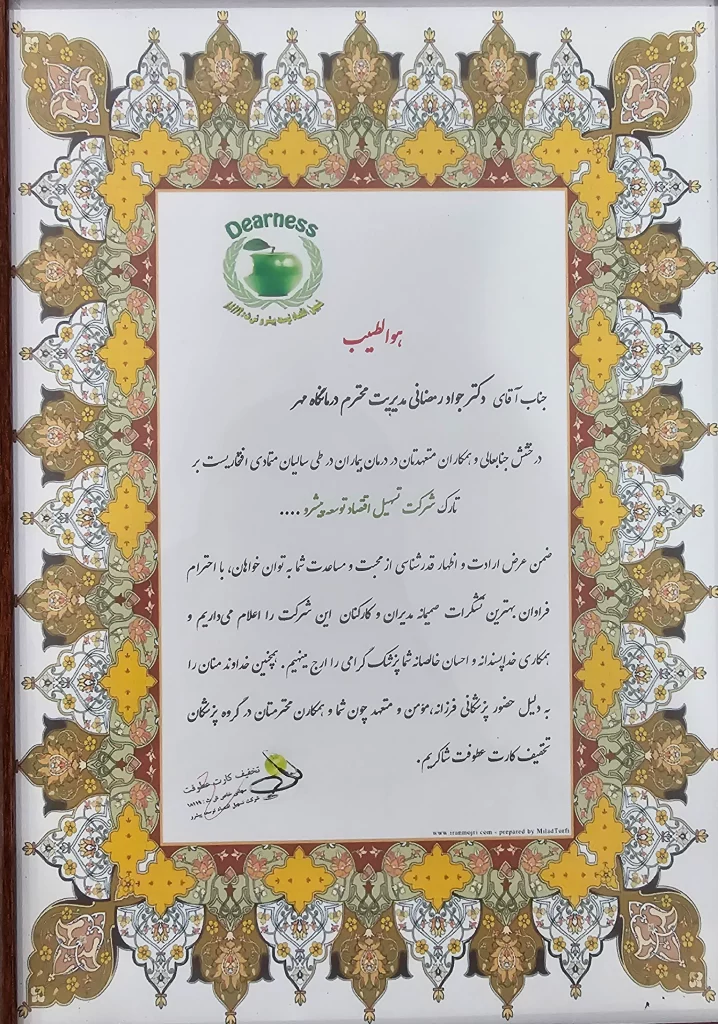 Dearness
هوالطبیب
جناب آقای دکتر جواد رمضانی مدیریت محترم درمانگاه مهر
درخشش جنابعالی و همکاران متعهدتان در درمان بیماران در طی سالیان متمادی افتخاریست بر
تارک شرکت تسهیل اقتصاد توسعه پیشرو ....
ضمن عرض ارادت و اظهار قدرشناسی از محبت و مساعدت شما به توان خواهان، با احترام
فراوان بهترین تشکرات صمیمانه مدیران و کارکنان این شرکت را اعلام می‌داریم و
همکاری خداپسندانه و احسان خالصانه شما پزشک گرامی را ارج مینهیم. همچنین خداوند منان را
به دلیل حضور پزشکانی فرزانه،مؤمن و متعهد چون شما و همکارن محترمتان در گروه پزشکان
تخفیف کارت عطوفت شاکریم.
تخفیف کارت عطوفت
شرکت تسهیل اقتصاد توسعه پیشرو
www.iranmojri.com - prepared by MiladTorfi